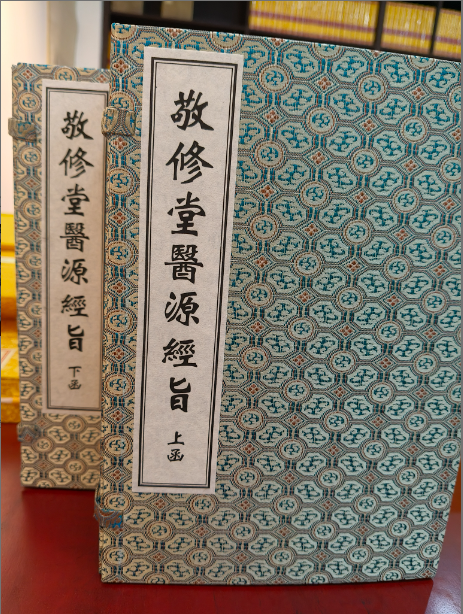 敬修堂醫源經旨 上函
敬修堂醫源經旨 下函